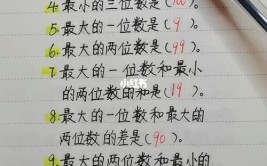 4. 最小的三位数是(100)。
5. 最大的一位数是(9)。
6. 最大的两位数是(99)。
7. 最大的一位数和最小
的两位数的和是(19)。
小红书
8. 最大的一位数和最大的
两位数的差是(90)。
9. 最大的两位数和最小的